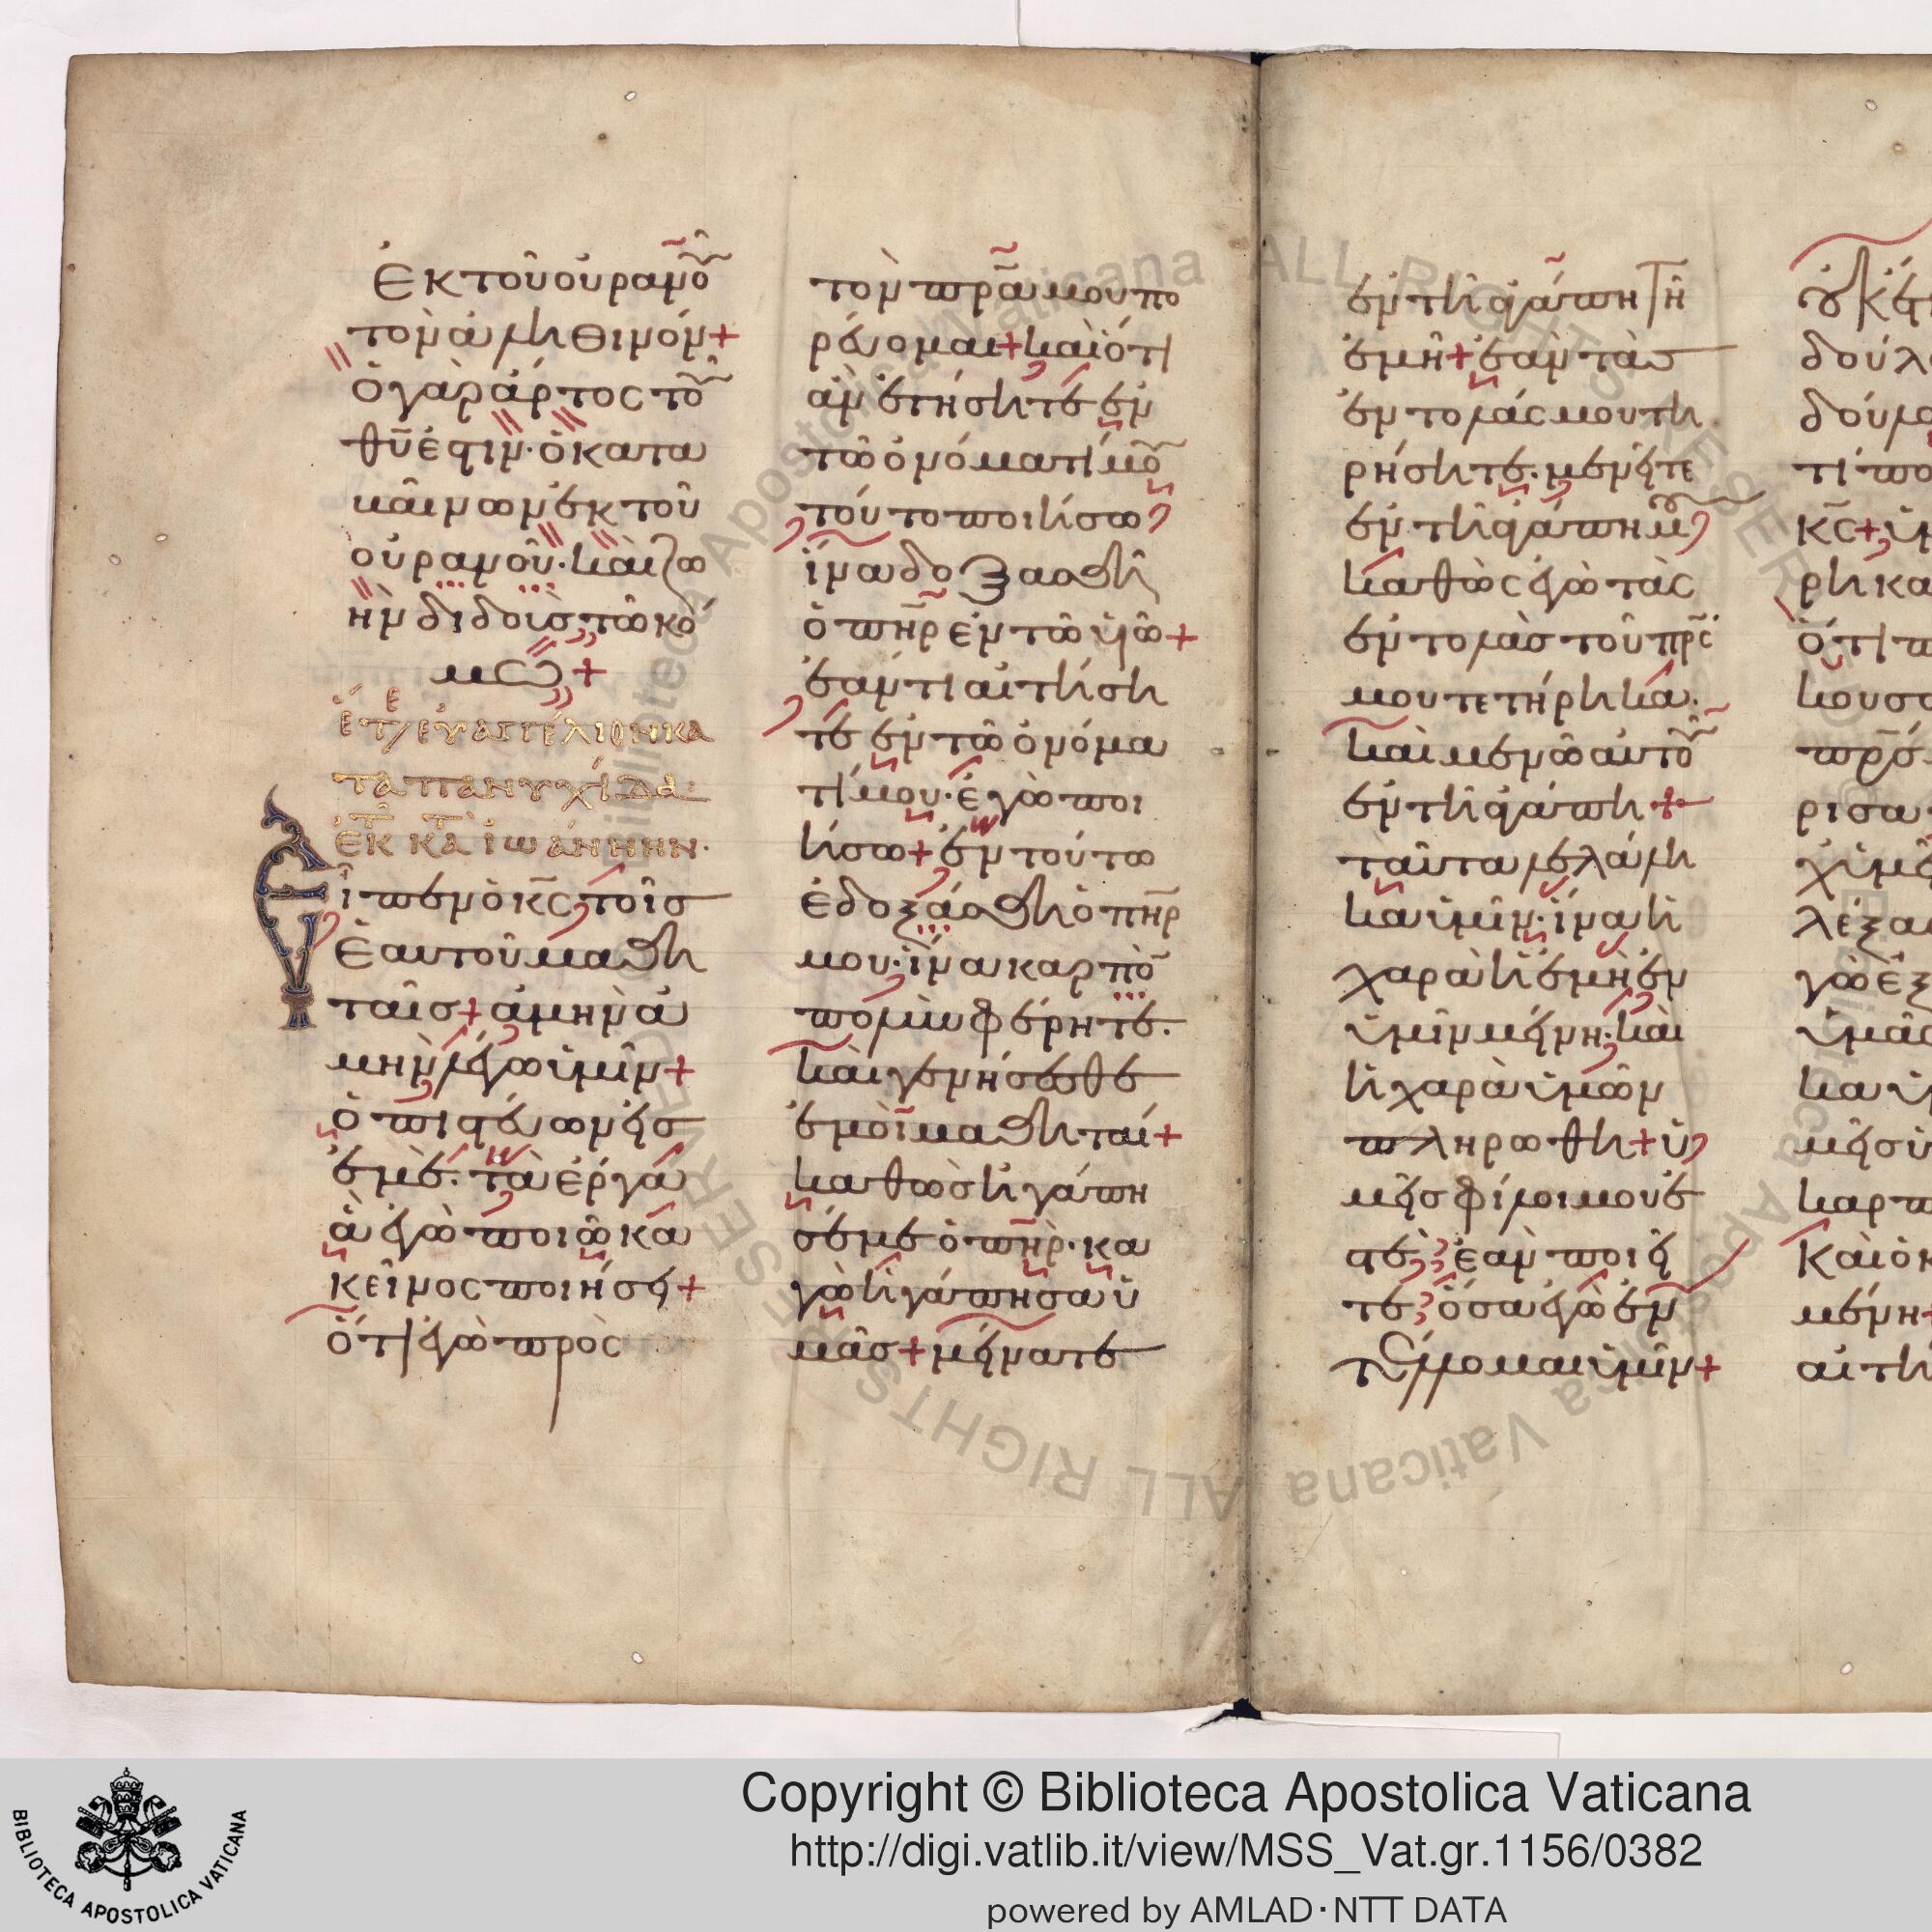 ἐκ τοῦ οὐρανοῦ
τὸν ἀληθινόν+
ὁ γὰρ ἄρτος τοῦ
θῦ ἐστιν· ὁ κατα
βαίνων ἐκ τοῦ
οὐρανοῦ· καὶ ζω
ὴν διδοὺς τῶ κό
σμω+
ἕτ/ εὐαγγέλιον κα
τὰ παννυχίδα:
ἐκ τ κατ ἰωάννην·
Εἶπεν ὁ κς τοῖς
ἑαυτοῦ μαθη
ταῖς+ ἀμὴν ἀ
μὴν λέγω ὑμῖν+
ὁ πιστεύων εἰς
ἐμὲ· τὰ ἔργα
ἃ ἐγὼ ποιῶ κα
κεῖνος ποιήσει+
ὅτι ἐγὼ πρὸς
τὸν πρα μου πο
ρεύομαι+ καὶ ὅτι
ἂν αἰτήσητε ἐν
τῶ ὀνόματί μου
τοῦτο ποιήσω
ἵνα δοξασθῆ
ὁ πηρ ἐν τῶ υἱῶ+
ἐάν τι αἰτήση
τε ἐν τῶ ὀνόμα
τί μου· ἐγὼ ποι
ήσω+ ἐν τούτω
ἐδοξάσθη ὁ πηρ
μου· ἵνα καρπὸν
πολὺν φέρητε·
καὶ γενήσεσθε
ἐμοὶ μαθηταί+
καθὼς ἠγάπη
σέ με ὁ πηρ· κα
γὼ ἠγάπησα ὑ
μᾶς+ μείνατε
ἐν τῆ ἀγάπη τῆ
ἐμῆ+ ἐὰν τὰς
ἐντολάς μου τη
ρήσητε· μενεῖτε
ἐν τῆ ἀγάπη μου
καθὼς ἐγὼ τὰς
ἐντολὰς τοῦ πρς
μου τετήρηκα·
καὶ μένω αὐτοῦ
ἐν τῆ ἀγάπη+
ταῦτα λελάλη
κα ὑμῖν· ἵνα ἡ
χαρὰ ἡ ἐμὴ ἐν
ὑμῖν μείνη· καὶ
ἡ χαρὰ ὑμῶν
πληρωθῆ+ ὑ
μεῖς φίλοι μού ἐ
στέ· ἐὰν ποιῆ
τε· ὅσα ἐγὼ ἐν
τέλλομαι ὑμῖν+
οὐκέτ
δούλ
δούλο
τί πο
κς+ ὑμ
ρηκα
ὅτι π
κουσ
πρσ
ρισα
χ ὑμε
λέξα
γὼ ἐξ
ὑμᾶς
κα ὑ
μεῖς ὑ
καρπ
καὶ ὁ κ
μένη+
αἰτή
Copyright © Biblioteca Apostolica Vaticana
http://digi.vatlib.it/view/MSS_Vat.gr.1156/0382
powered by AMLAD·NTT DATA
BIBLIOTECA APOSTOLICA VATICANA